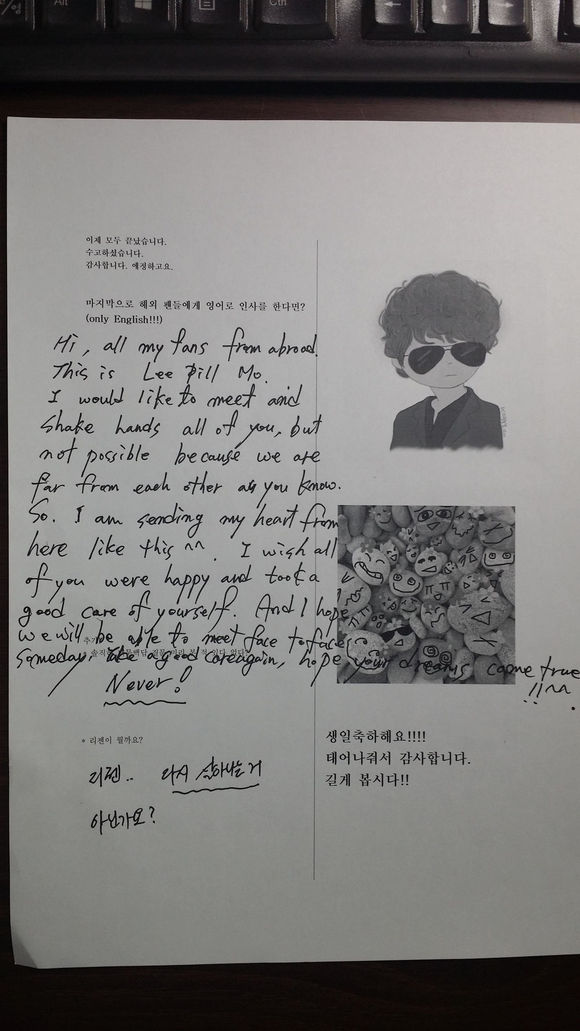 Alt
Ctrl
이제 모두 끝났습니다.
수고하셨습니다.
감사합니다. 애정하고요.
마지막으로 해외 팬들에게 영어로 인사를 한다면?
(only English!!!)
Hi, all my fans from abroad.
This is Lee Pill Mo.
I would like to meet and
shake hands all of you, but
not possible because we are
far from each other as you know.
So. I am sending my heart from
here like this ^^. I wish all
of you were happy and took a
good care of yourself. And I hope
we will be able to meet face to face
someday. Take a good care again, hope your dreams come true
!!^^.
Never!
* 리젠이 뭘까요?
리젠.. 다시 살아나는거
아닌가요?
생일축하해요!!!!
태어나줘서 감사합니다.
길게 봅시다!!